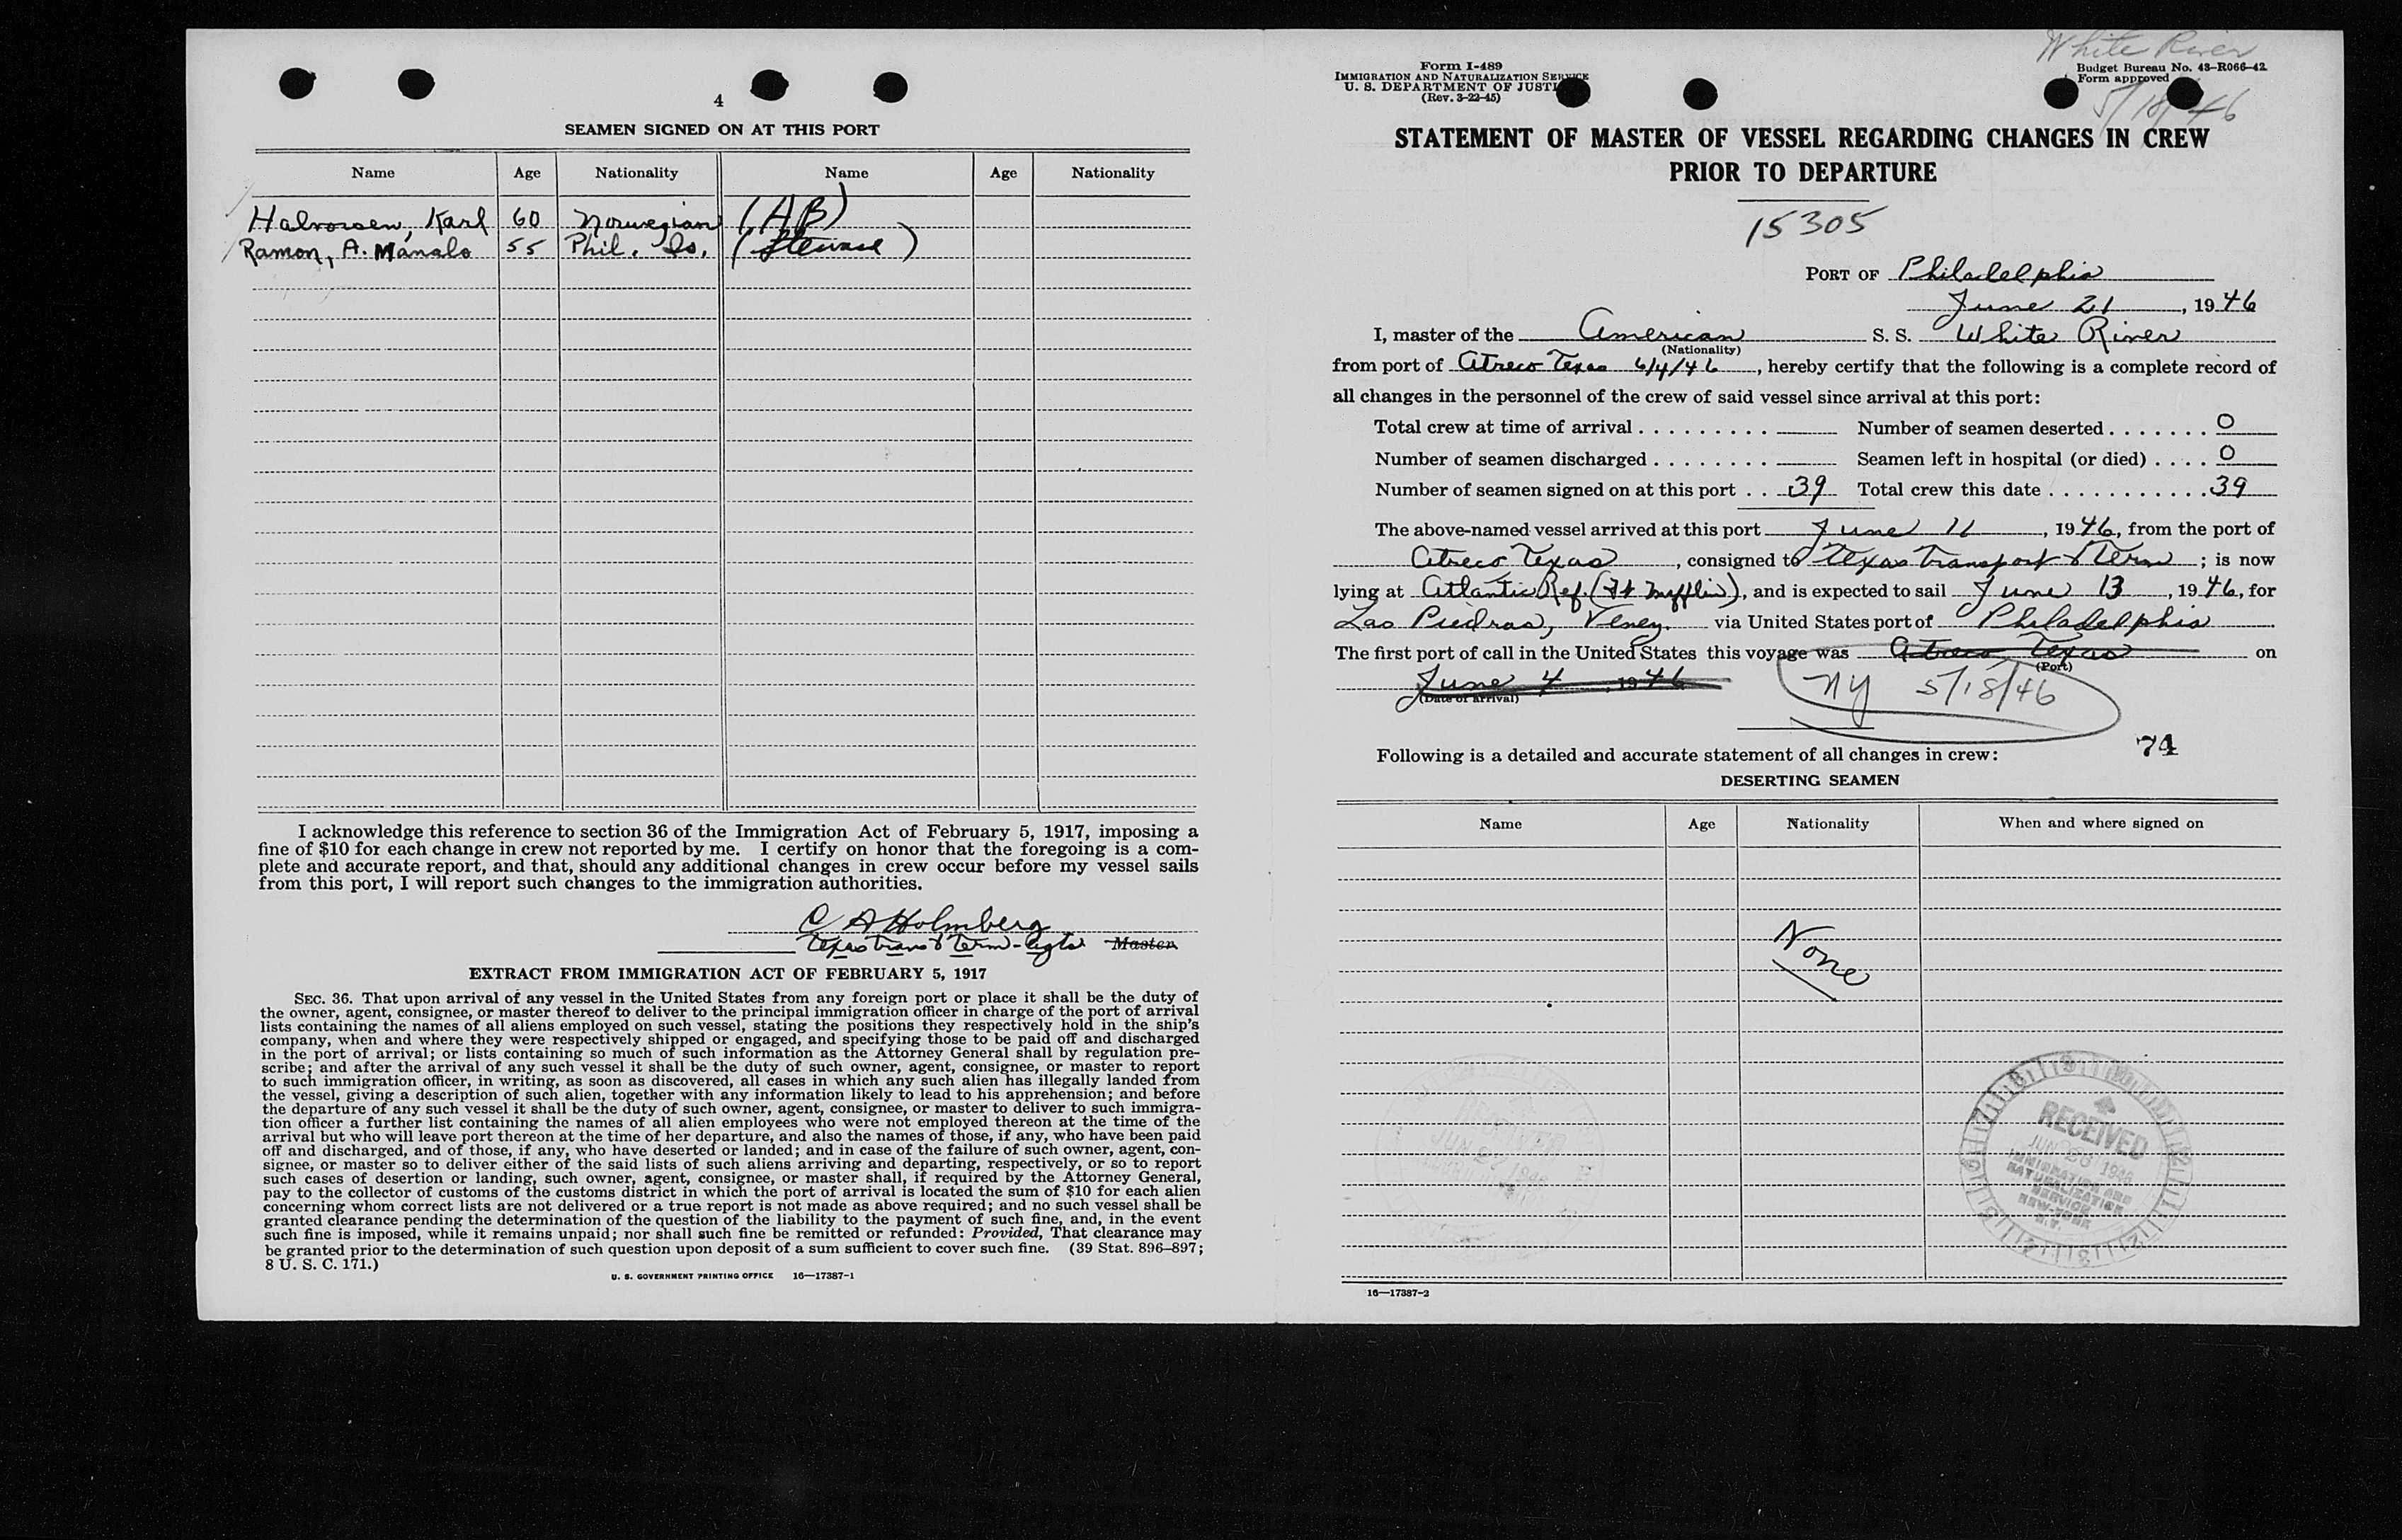 4
SEAMEN SIGNED ON AT THIS PORT
Name Age Nationality Name Age Nationality
Halvorsen, Karl 60 Norwegian (AB)
Ramon, A. Manalo 55 Phil. Is. (Steward)
I acknowledge this reference to section 36 of the Immigration Act of February 5, 1917, imposing a
fine of $10 for each change in crew not reported by me. I certify on honor that the foregoing is a com-
plete and accurate report, and that, should any additional changes in crew occur before my vessel sails
from this port, I will report such changes to the immigration authorities.
C A Holmberg
Texas Trans & Term - Agts Master
EXTRACT FROM IMMIGRATION ACT OF FEBRUARY 5, 1917
SEC. 36. That upon arrival of any vessel in the United States from any foreign port or place it shall be the duty of
the owner, agent, consignee, or master thereof to deliver to the principal immigration officer in charge of the port of arrival
lists containing the names of all aliens employed on such vessel, stating the positions they respectively hold in the ship's
company, when and where they were respectively shipped or engaged, and specifying those to be paid off and discharged
in the port of arrival; or lists containing so much of such information as the Attorney General shall by regulation pre-
scribe; and after the arrival of any such vessel it shall be the duty of such owner, agent, consignee, or master to report
to such immigration officer, in writing, as soon as discovered, all cases in which any such alien has illegally landed from
the vessel, giving a description of such alien, together with any information likely to lead to his apprehension; and before
the departure of any such vessel it shall be the duty of such owner, agent, consignee, or master to deliver to such immigra-
tion officer a further list containing the names of all alien employees who were not employed thereon at the time of the
arrival but who will leave port thereon at the time of her departure, and also the names of those, if any, who have been paid
off and discharged, and of those, if any, who have deserted or landed; and in case of the failure of such owner, agent, con-
signee, or master so to deliver either of the said lists of such aliens arriving and departing, respectively, or so to report
such cases of desertion or landing, such owner, agent, consignee, or master shall, if required by the Attorney General,
pay to the collector of customs of the customs district in which the port of arrival is located the sum of $10 for each alien
concerning whom correct lists are not delivered or a true report is not made as above required; and no such vessel shall be
granted clearance pending the determination of the question of the liability to the payment of such fine, and, in the event
such fine is imposed, while it remains unpaid; nor shall such fine be remitted or refunded: Provided, That clearance may
be granted prior to the determination of such question upon deposit of a sum sufficient to cover such fine. (39 Stat. 896–897;
8 U. S. C. 171.)
U. S. GOVERNMENT PRINTING OFFICE 16—17387-1
White River
5/18/46
Form I-489
IMMIGRATION AND NATURALIZATION SERVICE
U. S. DEPARTMENT OF JUSTI
(Rev. 3-22-45)
Budget Bureau No. 43-R066-42
Form approved
STATEMENT OF MASTER OF VESSEL REGARDING CHANGES IN CREW
PRIOR TO DEPARTURE
15305
PORT OF Philadelphia
June 21, 1946
I, master of the American S. S. White River
(Nationality)
from port of Atreco Texas 6/4/46, hereby certify that the following is a complete record of
all changes in the personnel of the crew of said vessel since arrival at this port:
Total crew at time of arrival . . . . . . . . . Number of seamen deserted . . . . . . . 0
Number of seamen discharged . . . . . . . . Seamen left in hospital (or died) . . . . 0
Number of seamen signed on at this port . . 39 Total crew this date . . . . . . . . . . . 39
The above-named vessel arrived at this port June 11, 1946, from the port of
Atreco Texas, consigned to Texas Transport & Term; is now
lying at Atlantic Ref. (Ft Mifflin), and is expected to sail June 13, 1946, for
Las Piedras, Venez. via United States port of Philadelphia
The first port of call in the United States this voyage was Atreco Texas on
(Port)
June 4, 1946
(Date of arrival)
NY 5/18/46
Following is a detailed and accurate statement of all changes in crew:
74
DESERTING SEAMEN
Name Age Nationality When and where signed on
None
RECEIVED
JUN 27 1946
RECEIVED
JUN 28 1946
IMMIGRATION AND
NATURALIZATION
SERVICE
NEW-YORK
N.Y.
16—17387-2